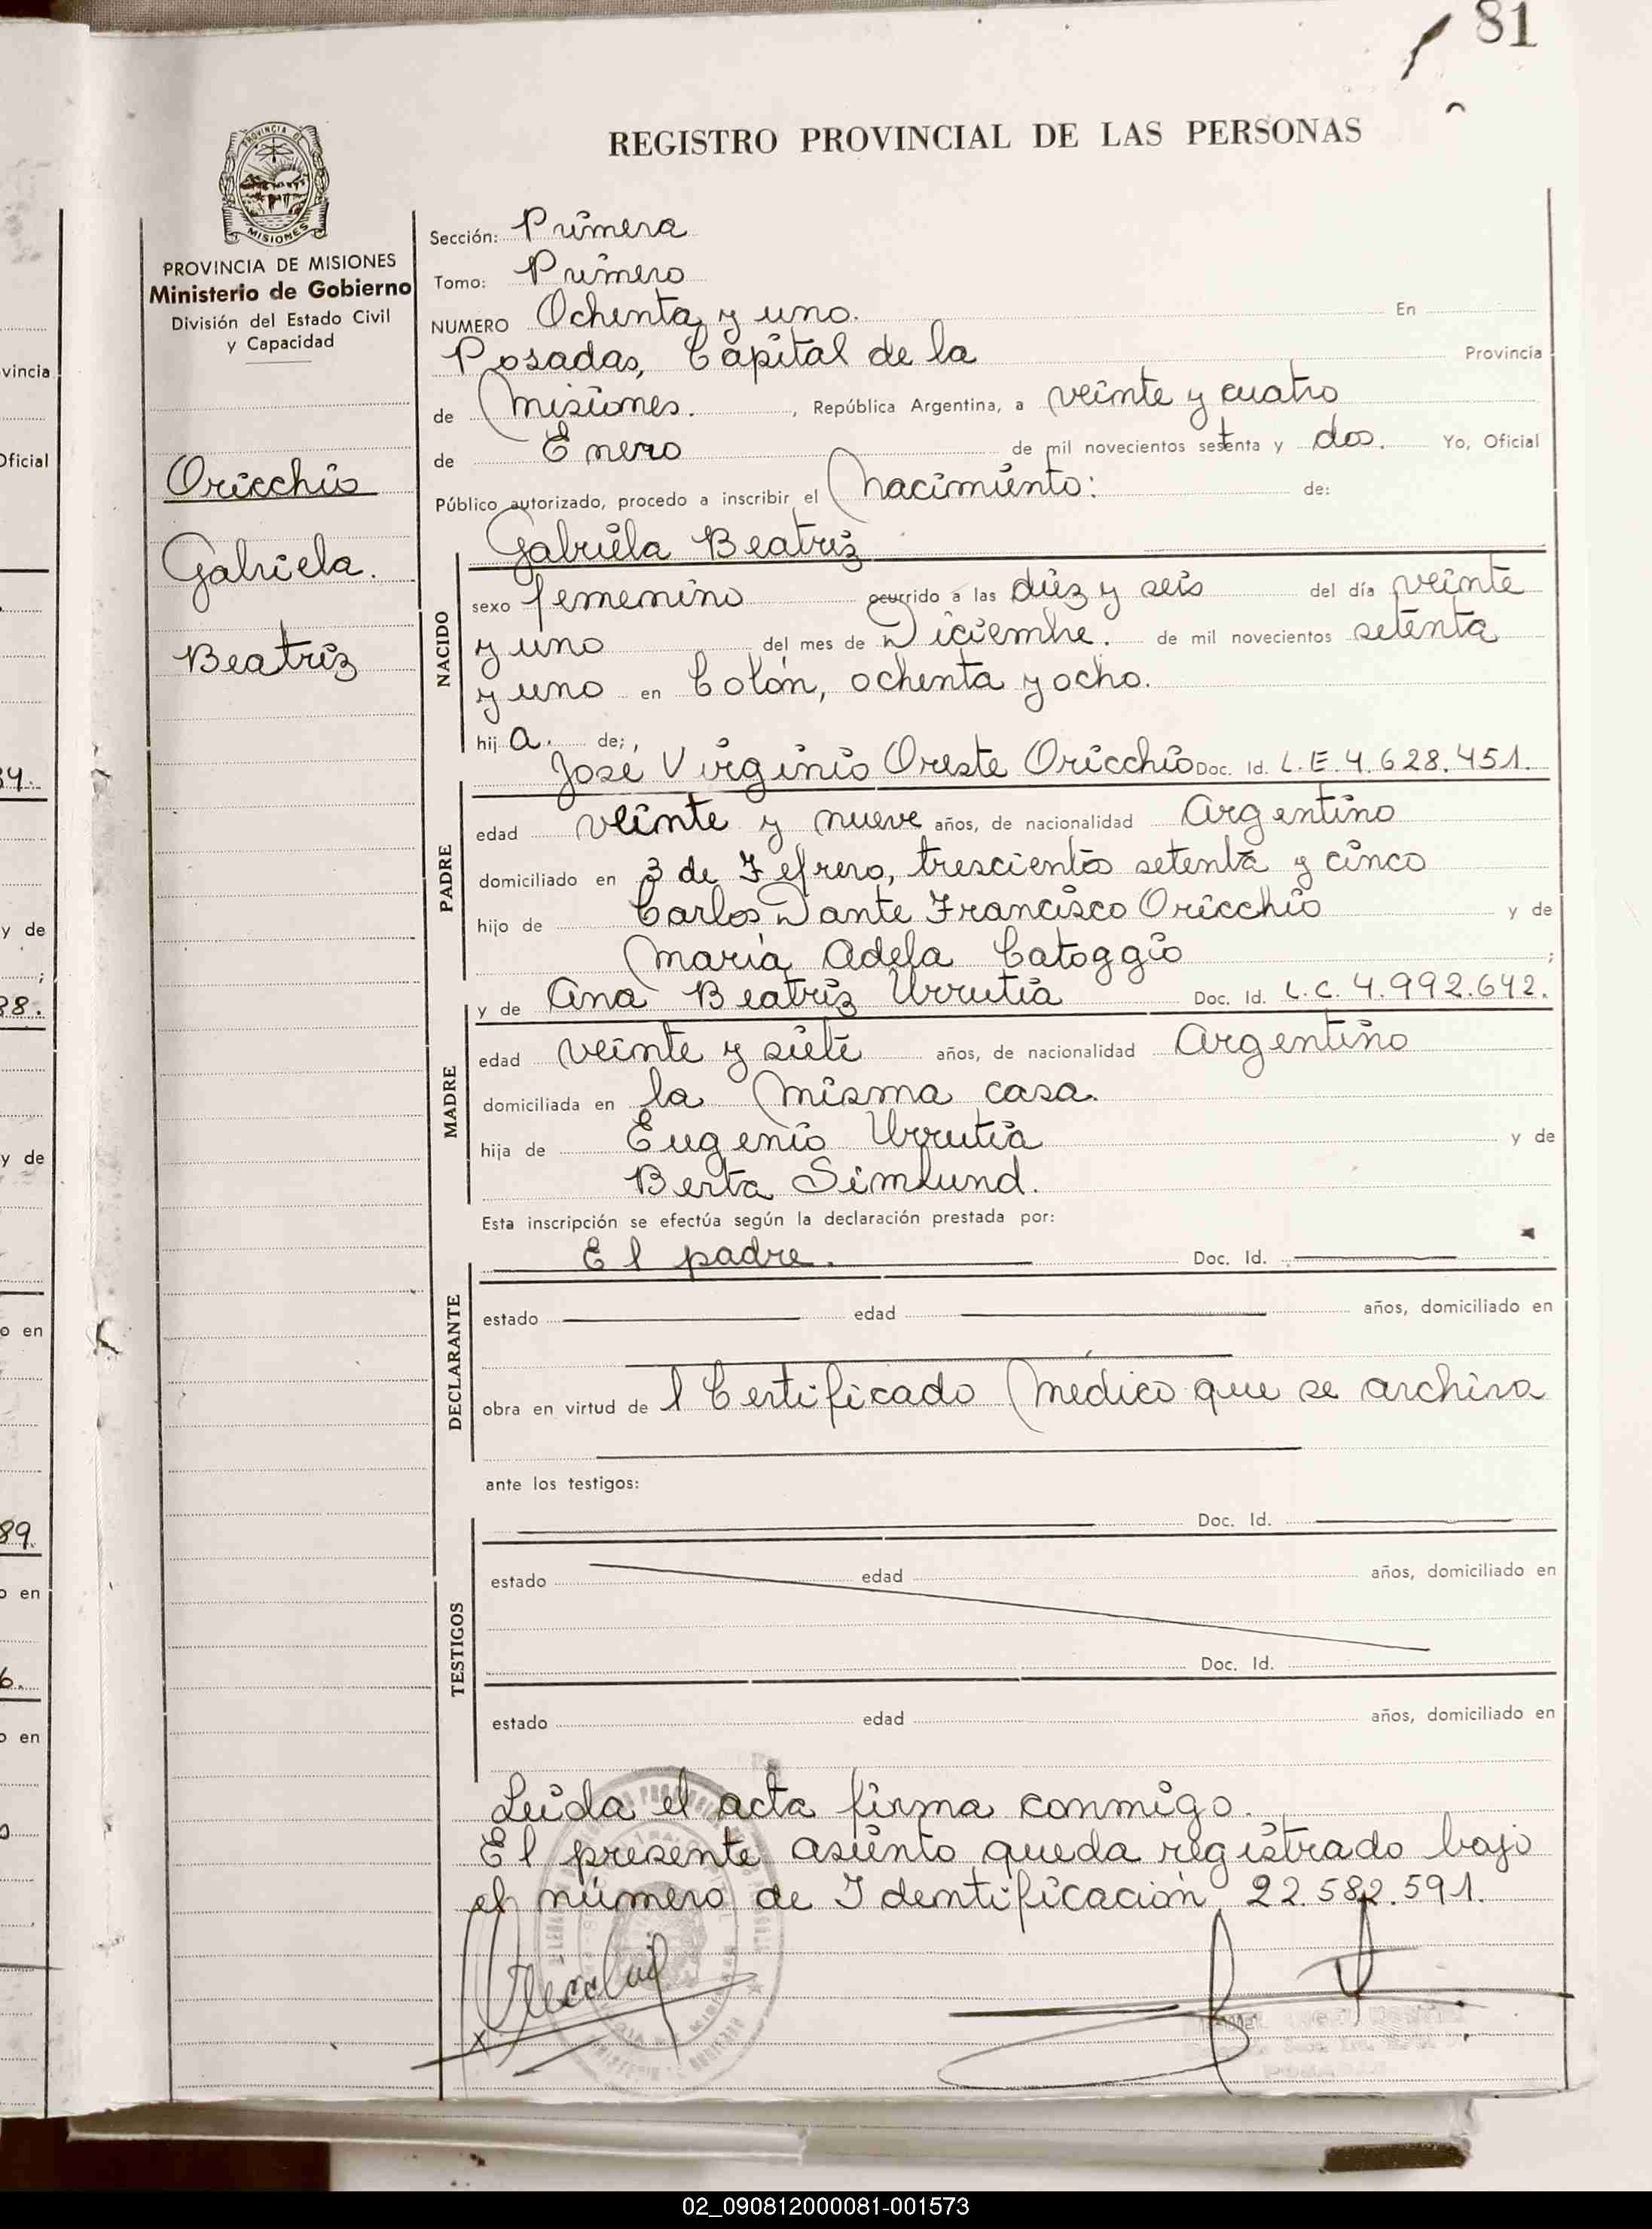 81
REGISTRO PROVINCIAL DE LAS PERSONAS
PROVINCIA DE
MISIONES
PROVINCIA DE MISIONES
Ministerio de Gobierno
División del Estado Civil
y Capacidad
Oricchio
Gabriela.
Beatriz
Sección: Primera
Tomo: Primero
NUMERO Ochenta y uno. En
Posadas, Capital de la Provincia
de Misiones. , República Argentina, a veinte y cuatro
de Enero de mil novecientos setenta y dos. Yo, Oficial
Público autorizado, procedo a inscribir el Nacimiento: de:
Gabriela Beatriz
NACIDO
sexo femenino ocurrido a las diez y seis del día veinte
y uno del mes de Diciembre. de mil novecientos setenta
y uno en Colón, ochenta y ocho.
hij a. de;,
José Virginio Oreste Oricchio Doc. Id. L.E. 4.628.451.
PADRE
edad veinte y nueve años, de nacionalidad Argentino
domiciliado en 3 de Fefrero, trescientos setenta y cinco
hijo de Carlos Dante Francisco Oricchio y de
María Adela Catoggio ;
y de Ana Beatriz Urrutia Doc. Id. L.C. 4.992.642.
MADRE
edad veinte y siete años, de nacionalidad Argentino
domiciliada en la misma casa.
hija de Eugenio Urrutia y de
Berta Simlund.
Esta inscripción se efectúa según la declaración prestada por:
El padre. Doc. Id.
DECLARANTE
estado edad años, domiciliado en
obra en virtud de l Certificado Médico que se archiva
ante los testigos:
Doc. Id.
TESTIGOS
estado edad años, domiciliado en
Doc. Id.
estado edad años, domiciliado en
Leída el acta firma conmigo.
El presente asiento queda registrado bajo
el número de Identificación 22.582.591.
vincia
Oficial
34.
y de
;
38.
y de
o en
89.
o en
6.
o en
02_090812000081-001573